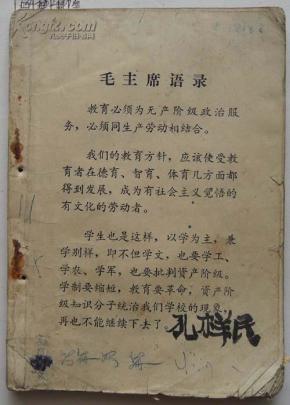 毛主席语录
教育必须为无产阶级政治服
务，必须同生产劳动相结合。
我们的教育方针，应该使受教
育者在德育、智育、体育几方面都
得到发展，成为有社会主义觉悟的
有文化的劳动者。
学生也是这样，以学为主，兼
学别样，即不但学文，也要学工、
学农、学军，也要批判资产阶级。
学制要缩短，教育要革命，资产阶
级知识分子统治我们学校的现象，
再也不能继续下去了。
孔样民